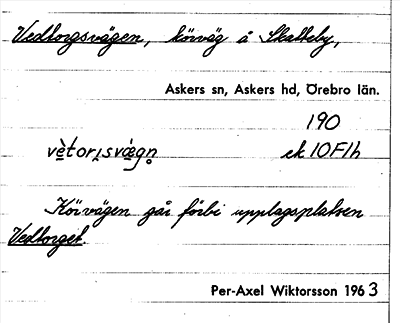 Vedtorgsvägen, körväg å Skalteby,
Askers sn, Askers hd, Örebro län.
190
vètorı̨svæ̀gn̥ ek 10F1h
Körvägen går förbi upplagsplatsen
Vedtorget.
Per-Axel Wiktorsson 1963